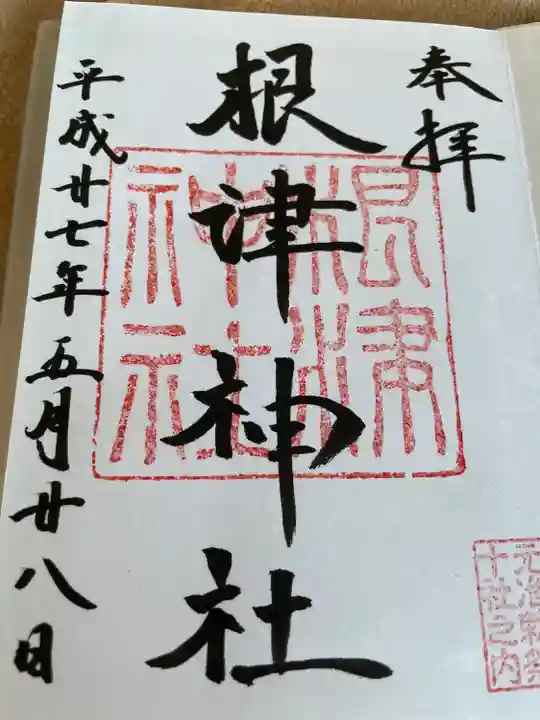 奉拝
根津神社
平成廿七年五月廿八日
根津
神社
元准勅祭
十社之内